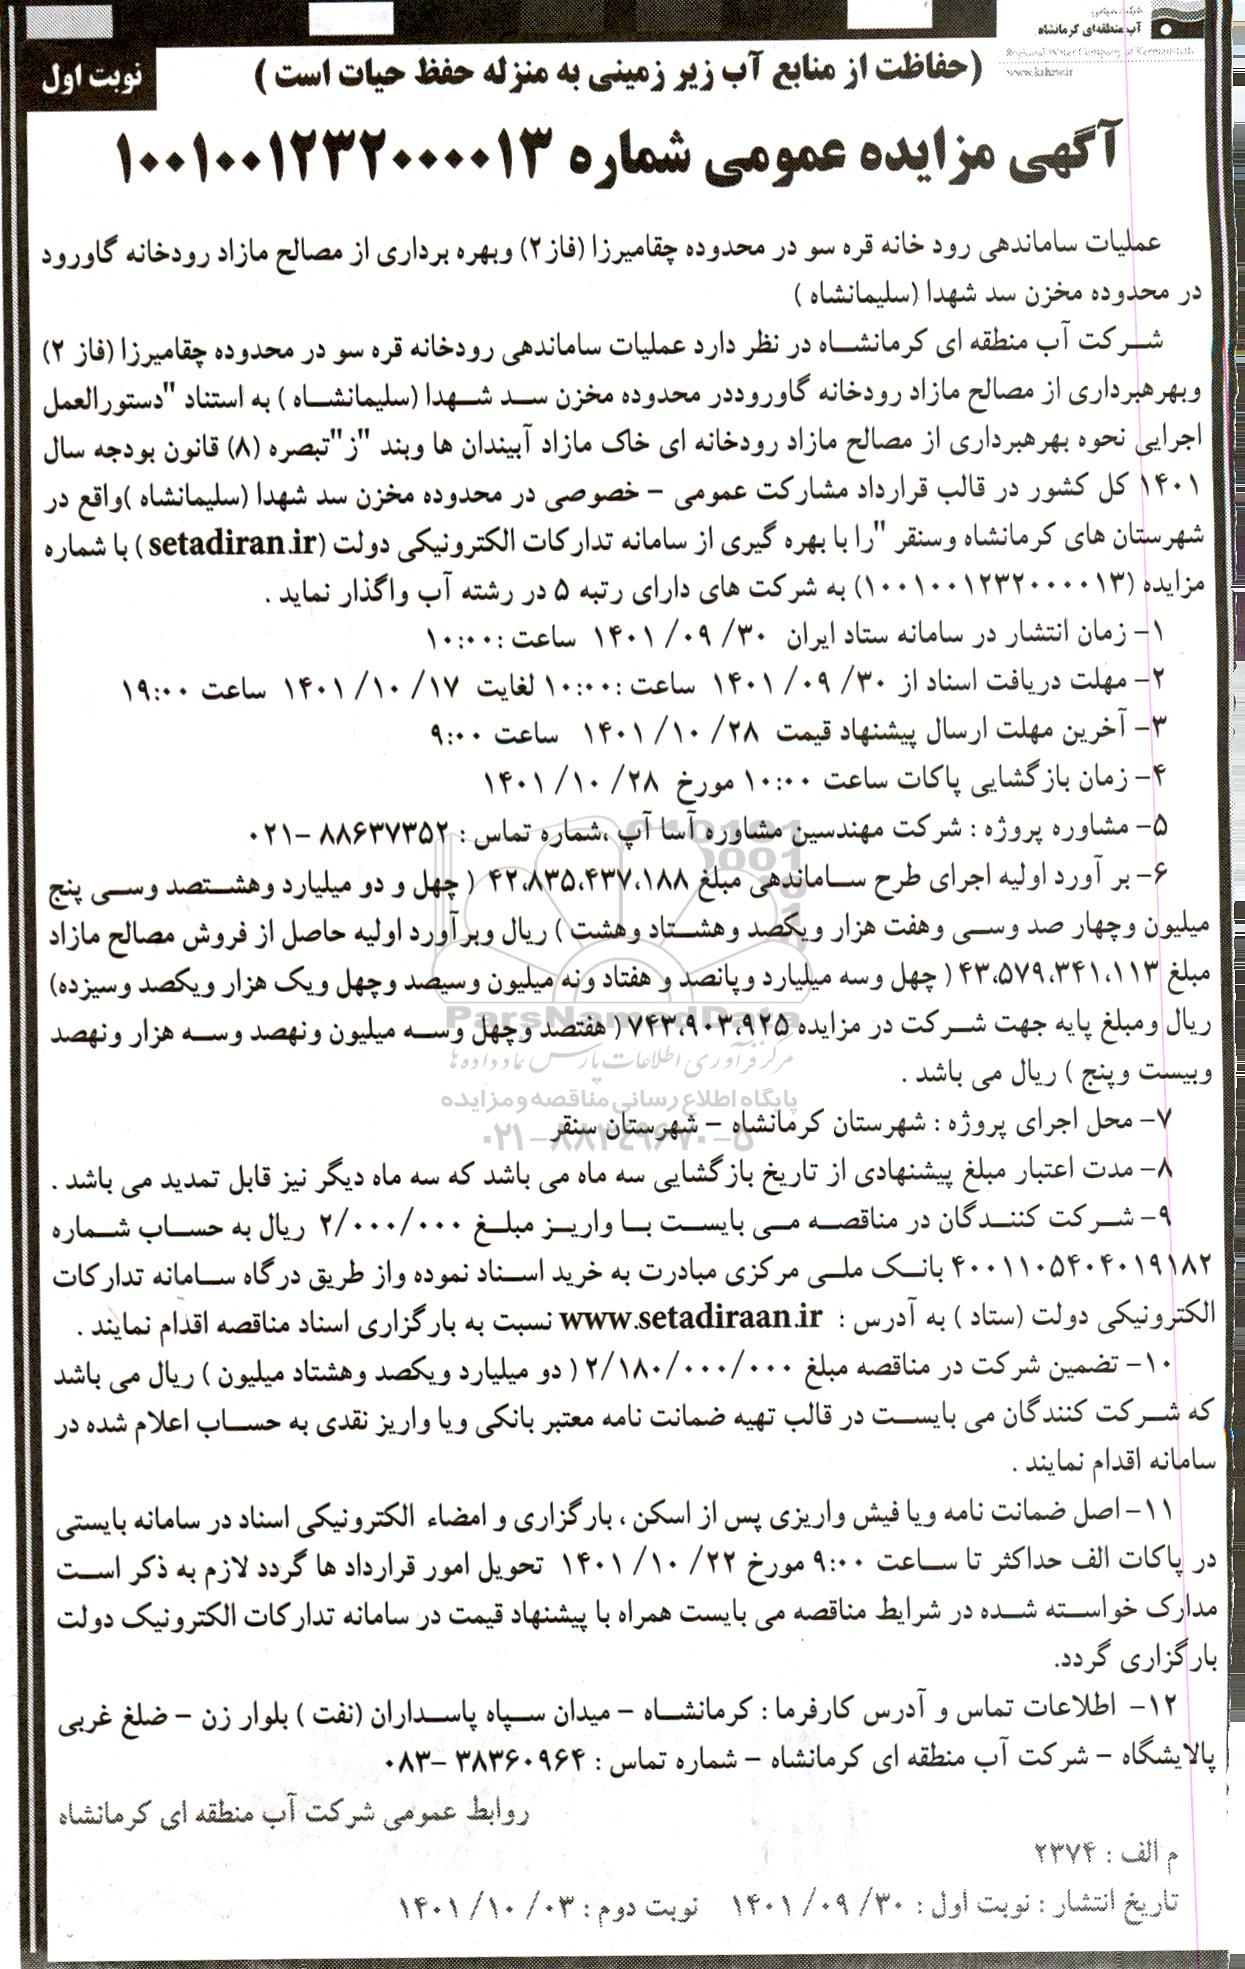 شرکت سهامی
آب منطقه‌ای کرمانشاه
Regional Water Company of Kermanshah
www.kshrw.ir
نوبت اول
(حفاظت از منابع آب زیر زمینی به منزله حفظ حیات است )
آگهی مزایده عمومی شماره ۱۰۰۱۰۰۱۲۳۲۰۰۰۰۱۳
عملیات ساماندهی رود خانه قره سو در محدوده چقامیرزا (فاز۲) وبهره برداری از مصالح مازاد رودخانه گاورود
در محدوده مخزن سد شهدا (سلیمانشاه )
شرکت آب منطقه ای کرمانشاه در نظر دارد عملیات ساماندهی رودخانه قره سو در محدوده چقامیرزا (فاز ۲)
وبهرهبرداری از مصالح مازاد رودخانه گاوروددر محدوده مخزن سد شهدا (سلیمانشاه ) به استناد "دستورالعمل
اجرایی نحوه بهرهبرداری از مصالح مازاد رودخانه ای خاک مازاد آببندان ها وبند "ز"تبصره (۸) قانون بودجه سال
۱۴۰۱ کل کشور در قالب قرارداد مشارکت عمومی – خصوصی در محدوده مخزن سد شهدا (سلیمانشاه )واقع در
شهرستان های کرمانشاه وسنقر "را با بهره گیری از سامانه تدارکات الکترونیکی دولت (setadiran.ir ) با شماره
مزایده (۱۰۰۱۰۰۱۲۳۲۰۰۰۰۱۳) به شرکت های دارای رتبه ۵ در رشته آب واگذار نماید .
۱- زمان انتشار در سامانه ستاد ایران ۳۰/ ۰۹/ ۱۴۰۱ ساعت :۱۰:۰۰
۲- مهلت دریافت اسناد از ۳۰/ ۰۹/ ۱۴۰۱ ساعت :۱۰:۰۰ لغایت ۱۷/ ۱۰/ ۱۴۰۱ ساعت ۱۹:۰۰
۳- آخرین مهلت ارسال پیشنهاد قیمت ۲۸/ ۱۰/ ۱۴۰۱ ساعت ۹:۰۰
۴- زمان بازگشایی پاکات ساعت ۱۰:۰۰ مورخ ۲۸/ ۱۰/ ۱۴۰۱
۵- مشاوره پروژه : شرکت مهندسین مشاوره آسا آپ ،شماره تماس : ۸۸۶۳۷۳۵۲ -۰۲۱
۶- بر آورد اولیه اجرای طرح ساماندهی مبلغ ۴۲،۸۳۵،۴۳۷،۱۸۸ ( چهل و دو میلیارد وهشتصد وسی پنج
میلیون وچهار صد وسی وهفت هزار ویکصد وهشتاد وهشت ) ریال وبرآورد اولیه حاصل از فروش مصالح مازاد
مبلغ ۴۳،۵۷۹،۳۴۱،۱۱۳ ( چهل وسه میلیارد وپانصد و هفتاد ونه میلیون وسیصد وچهل ویک هزار ویکصد وسیزده)
ریال ومبلغ پایه جهت شرکت در مزایده ۷۴۳،۹۰۳،۹۲۵ ( هفتصد وچهل وسه میلیون ونهصد وسه هزار ونهصد
وبیست وپنج ) ریال می باشد .
ParsNamadData
مرکز فرآوری اطلاعات پارس نماد داده ها
پایگاه اطلاع رسانی مناقصه و مزایده
۰۲۱-۸۸۳۴۹۶۷۰-۵
۷- محل اجرای پروژه : شهرستان کرمانشاه – شهرستان سنقر
۸- مدت اعتبار مبلغ پیشنهادی از تاریخ بازگشایی سه ماه می باشد که سه ماه دیگر نیز قابل تمدید می باشد .
۹- شرکت کنندگان در مناقصه می بایست با واریز مبلغ ۲/۰۰۰/۰۰۰ ریال به حساب شماره
۴۰۰۱۱۰۵۴۰۴۰۱۹۱۸۲ بانک ملی مرکزی مبادرت به خرید اسناد نموده واز طریق درگاه سامانه تدارکات
الکترونیکی دولت (ستاد ) به آدرس : www.setadiraan.ir نسبت به بارگزاری اسناد مناقصه اقدام نمایند .
۱۰- تضمین شرکت در مناقصه مبلغ ۲/۱۸۰/۰۰۰/۰۰۰ ( دو میلیارد ویکصد وهشتاد میلیون ) ریال می باشد
که شرکت کنندگان می بایست در قالب تهیه ضمانت نامه معتبر بانکی ویا واریز نقدی به حساب اعلام شده در
سامانه اقدام نمایند .
۱۱- اصل ضمانت نامه ویا فیش واریزی پس از اسکن ، بارگزاری و امضاء الکترونیکی اسناد در سامانه بایستی
در پاکات الف حداکثر تا ساعت ۹:۰۰ مورخ ۲۲/ ۱۰/ ۱۴۰۱ تحویل امور قرارداد ها گردد لازم به ذکر است
مدارک خواسته شده در شرایط مناقصه می بایست همراه با پیشنهاد قیمت در سامانه تدارکات الکترونیک دولت
بارگزاری گردد.
۱۲- اطلاعات تماس و آدرس کارفرما : کرمانشاه – میدان سپاه پاسداران (نفت ) بلوار زن – ضلع غربی
پالایشگاه – شرکت آب منطقه ای کرمانشاه – شماره تماس : ۳۸۳۶۰۹۶۴ -۰۸۳
روابط عمومی شرکت آب منطقه ای کرمانشاه
م الف : ۲۳۷۴
تاریخ انتشار : نوبت اول : ۳۰/ ۰۹/ ۱۴۰۱ نوبت دوم : ۰۳/ ۱۰/ ۱۴۰۱